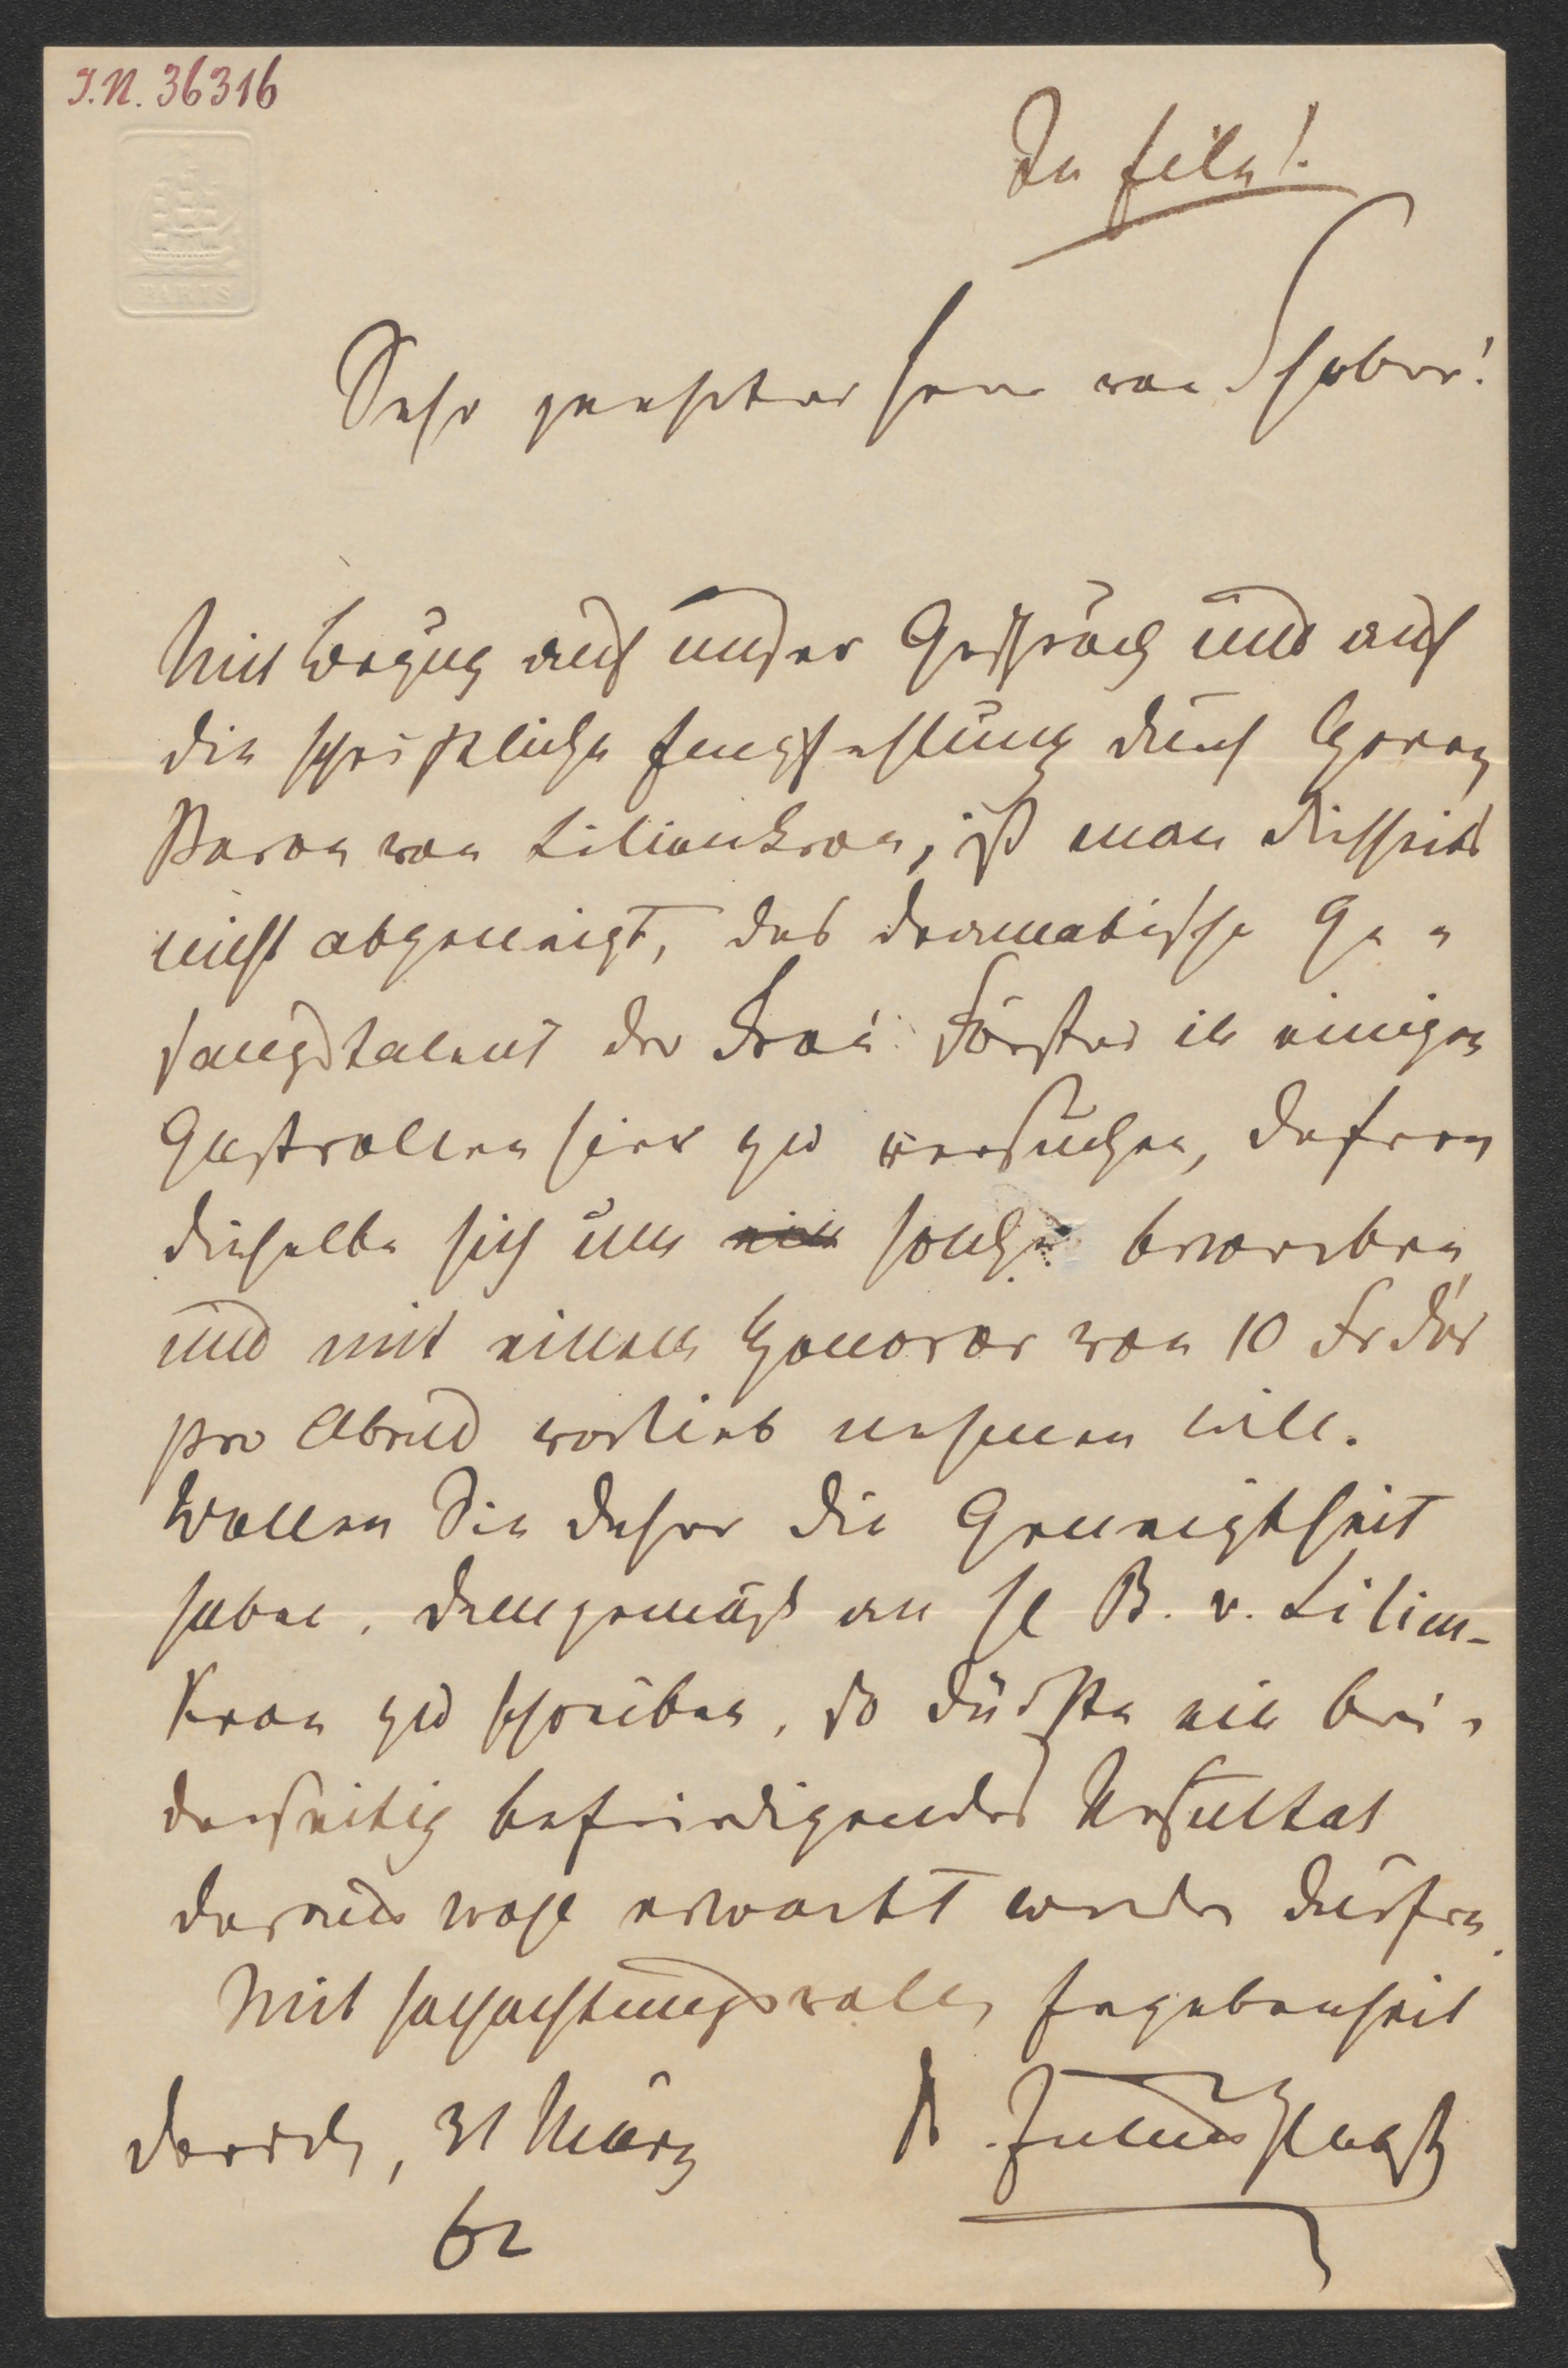 I.N. 36316
In Eile!
PARIS
Sehr geehrter Herr von Schober!
Mit Bezug auf unser Gespräch und auf
die schriftliche Empfehlung durch Herrn
Baron von Lilienkron, ist man disseits
nicht abgeneigt, das dramatische Ge-
sangstalent der Frau Förster in einigen
Gastrollen hier zu versuchen, dafern
dieselbe sich um ein solche bewerben
und mit einem Honorar von 10 Frdór
pro Abend vorlieb nehmen will.
Wollen Sie daher die Geneigtheit
haben, demgemäß an H B. v. Lilien-
kron zu schreiben, so dürfte ein bei-
derseitig befriedigendes Resultat
daraus wohl erwartet werden dürfen.
Mit hochachtungsvoller Ergebenheit
Dresd, 31 März
Dr. Julius Pabst
62